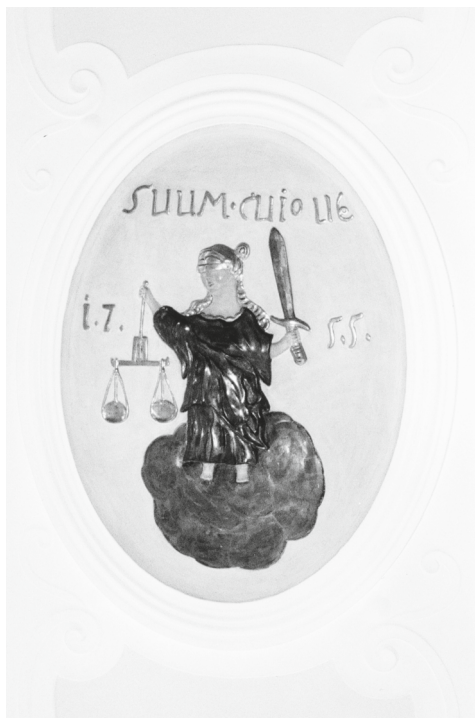 SUUM·CUIQUE
i.7. 5.5.